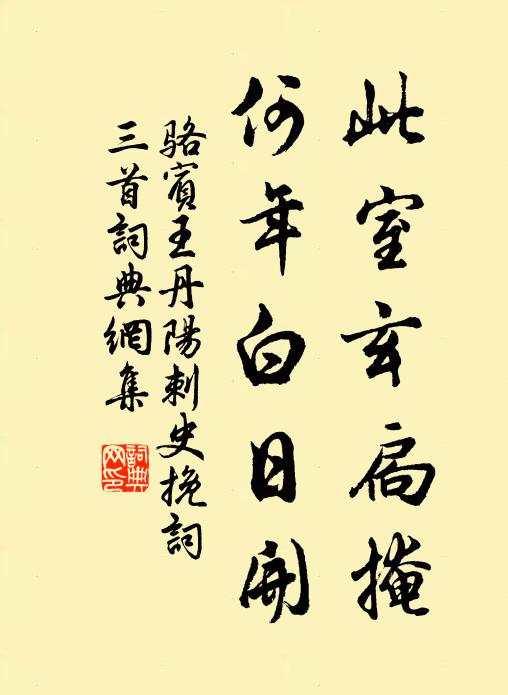 此室玄扃掩
何年白日開
駱賓王丹陽刺史挽詞
三首詞典網集
詞典
网印